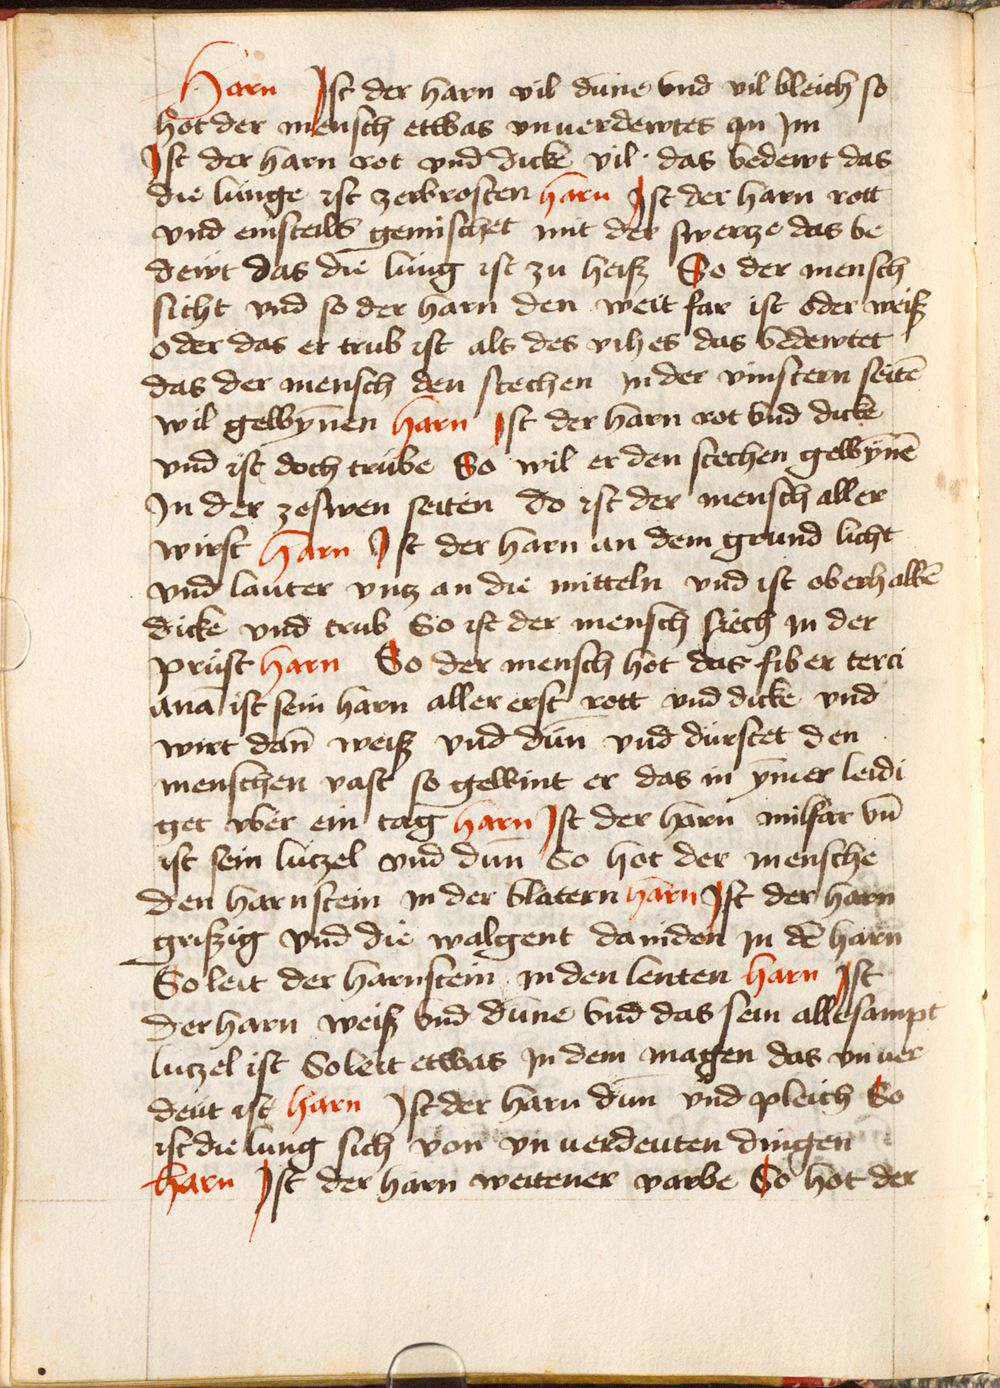 Harn Ist der harn vil dune vnd vil bleich so
hot der mensch ettwas vnuerdewtes an Im
Ist der harn rot vnd dicke vil · das bedewt das
die lunge ist zerbrosten harn Ist der harn rott
vnd einsteils gemischet mit der swertze das be
dewt das die lung ist zu heiß So der mensch
sicht vnd so der harn den weit far ist oder weiß
oder das er trub ist als des vihes das bedewtet
das der mensch den stechen In der vinstern seitē
wil gewȳnen harn Ist der harn rot vnd dicke
vnd ist doch trube So wil er den stechen gewȳnē
In der zeswen seiten do ist der mensch aller
wirst harn Ist der harn an dem grund licht
vnd lauter vntz an die mitteln vnd ist oberhalbē
dicke vnd trub So ist der mensch siech In der
prust harn So der mensch hot das fiber terci
anā ist sein harn aller erst rott vnd dicke vnd
wirt dan̄ weiß vnd dūn vnd durstet den
menschen vast so gewint er das in ȳmer leidi
get vber ein tag harn Ist der harn milfar vn̄
ist sein lutzel vnd dun̄ So hot der mensche
den harnstein In der blatern harn Ist der harn
grißig vnd die walgent da niden In dē harn
So leit der harnstein In den lenten harn Ist
der harn weiß vnd dūne vnd das sein allesampt
lutzel ist So leit etwas In dem magen das vnuer
deut ist harn Ist der harn dūn vnd pleich So
ist die lung sich von vnuerdeuten dingen
harn Ist der harn weitener varbe So hot der